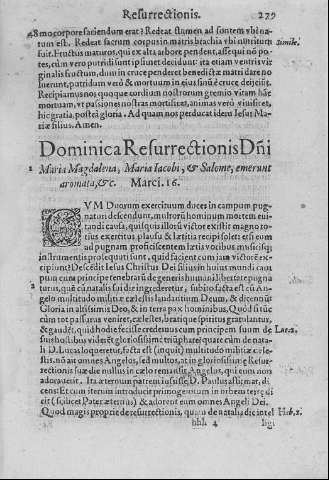 Resurrectionis. 229
mo corpore faciendum erat? Redeat tamen ad fontem vbi na-
tum est. Redeat sacrum corpus in matris brachia vbi nutritum Simile.
fuit. Fructus maturus, qui ex alta arbore pendent, asse qui nõ po-
tes, cùm vero putridi sunt ipsi met decidunt: ita etiam ventris vir
ginalis fructum, dum in cruce penderet benedictæ matri dare no
luerunt, putridum verò & mortuum in eius sinũ è cruce deijciũt.
Recipiamus nos quoque cordium nostrorum gremio vitam hãc
mortuam, vt passiones nostras mortificet, animas verò viuificet,
hîc gratia, postea gloria. Ad quam nos perducat idem Iesus Ma-
riæ filius. Amen.
Dominica Resurrectionis Dñi
1 Maria Magdalena, Maria Iacobi, & Salome, emerunt
aromata, &c. Marci. 16.
CVM Duorum exercituum duces in campum pug-
naturi descendunt, multorũ hominum mortem eui-
tandi causa, quisquis illorũ victor exstitit magno to-
tius exercitus plausu & lætitia recipi solet: et si eum
ad pugnam proficiscentem lætis vocibus, musicisq;
instrumentis prosequuti sunt, quid facient cum iam victorẽ ex-
cipiunt? Descẽdit Iesus Christus Dei filius in huius mundi cam
pum cum principe tenebrarũ de generis humani libertate pugna
2 turus, qui cũ natalis sui die ingrederetur, subito facta est cũ An-
gelo multitudo militiæ cælestis laudantium Deum, & dicentiũ:
Gloria in altissimis Deo, & in terra pax hominibus. Quòd si tũc
cùm tot passurus veniret, cælestes, hranq; se spiritus gratulantur,
& gaudẽt, quid hodie fecisse credimus cum principem suum de Luc. 2.
suis hostibus viderẽt gloriosissimè triũphare? quare cùm de nata-
li D. Lucas loqueretur, facta est (inquit) multitudo militiæ cęle-
stis, nõ aut omnes Angelos, sed multos, at in gloriosissimę Resur-
rectionis suæ die nullus in cælo remansit Angelus, qui eum non
adorauerit. Ita æternum patrem iussisse D. Paulus affirmat, di-
cens: Et cum iterum introducit primogenitum in orbem terræ di
cit (scilicet Pater æternus) & adorent eum omnes Angeli Dei.
Quod magis proprie de resurrectionis, quam de natalis die intel Heb. 1.
hhl 4 ligi